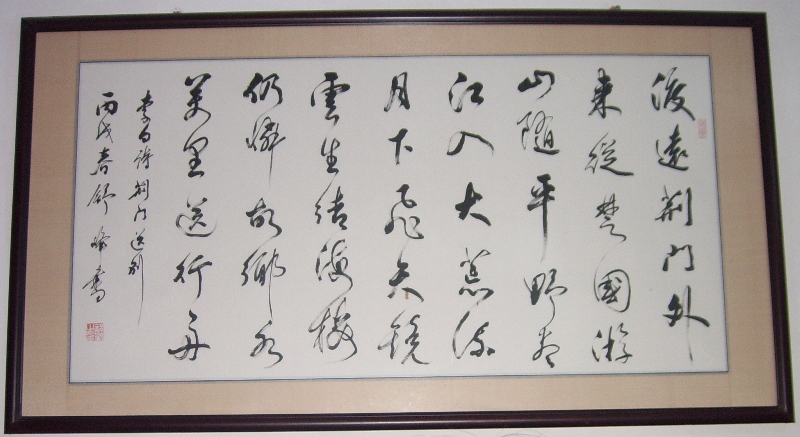 渡遠荆門外
來從楚國游
山隨平野盡
江入大荒流
月下飛天鏡
雲生結海樓
仍憐故鄉水
萬里送行舟
李白詩荆門送別
丙戌春舒峰書